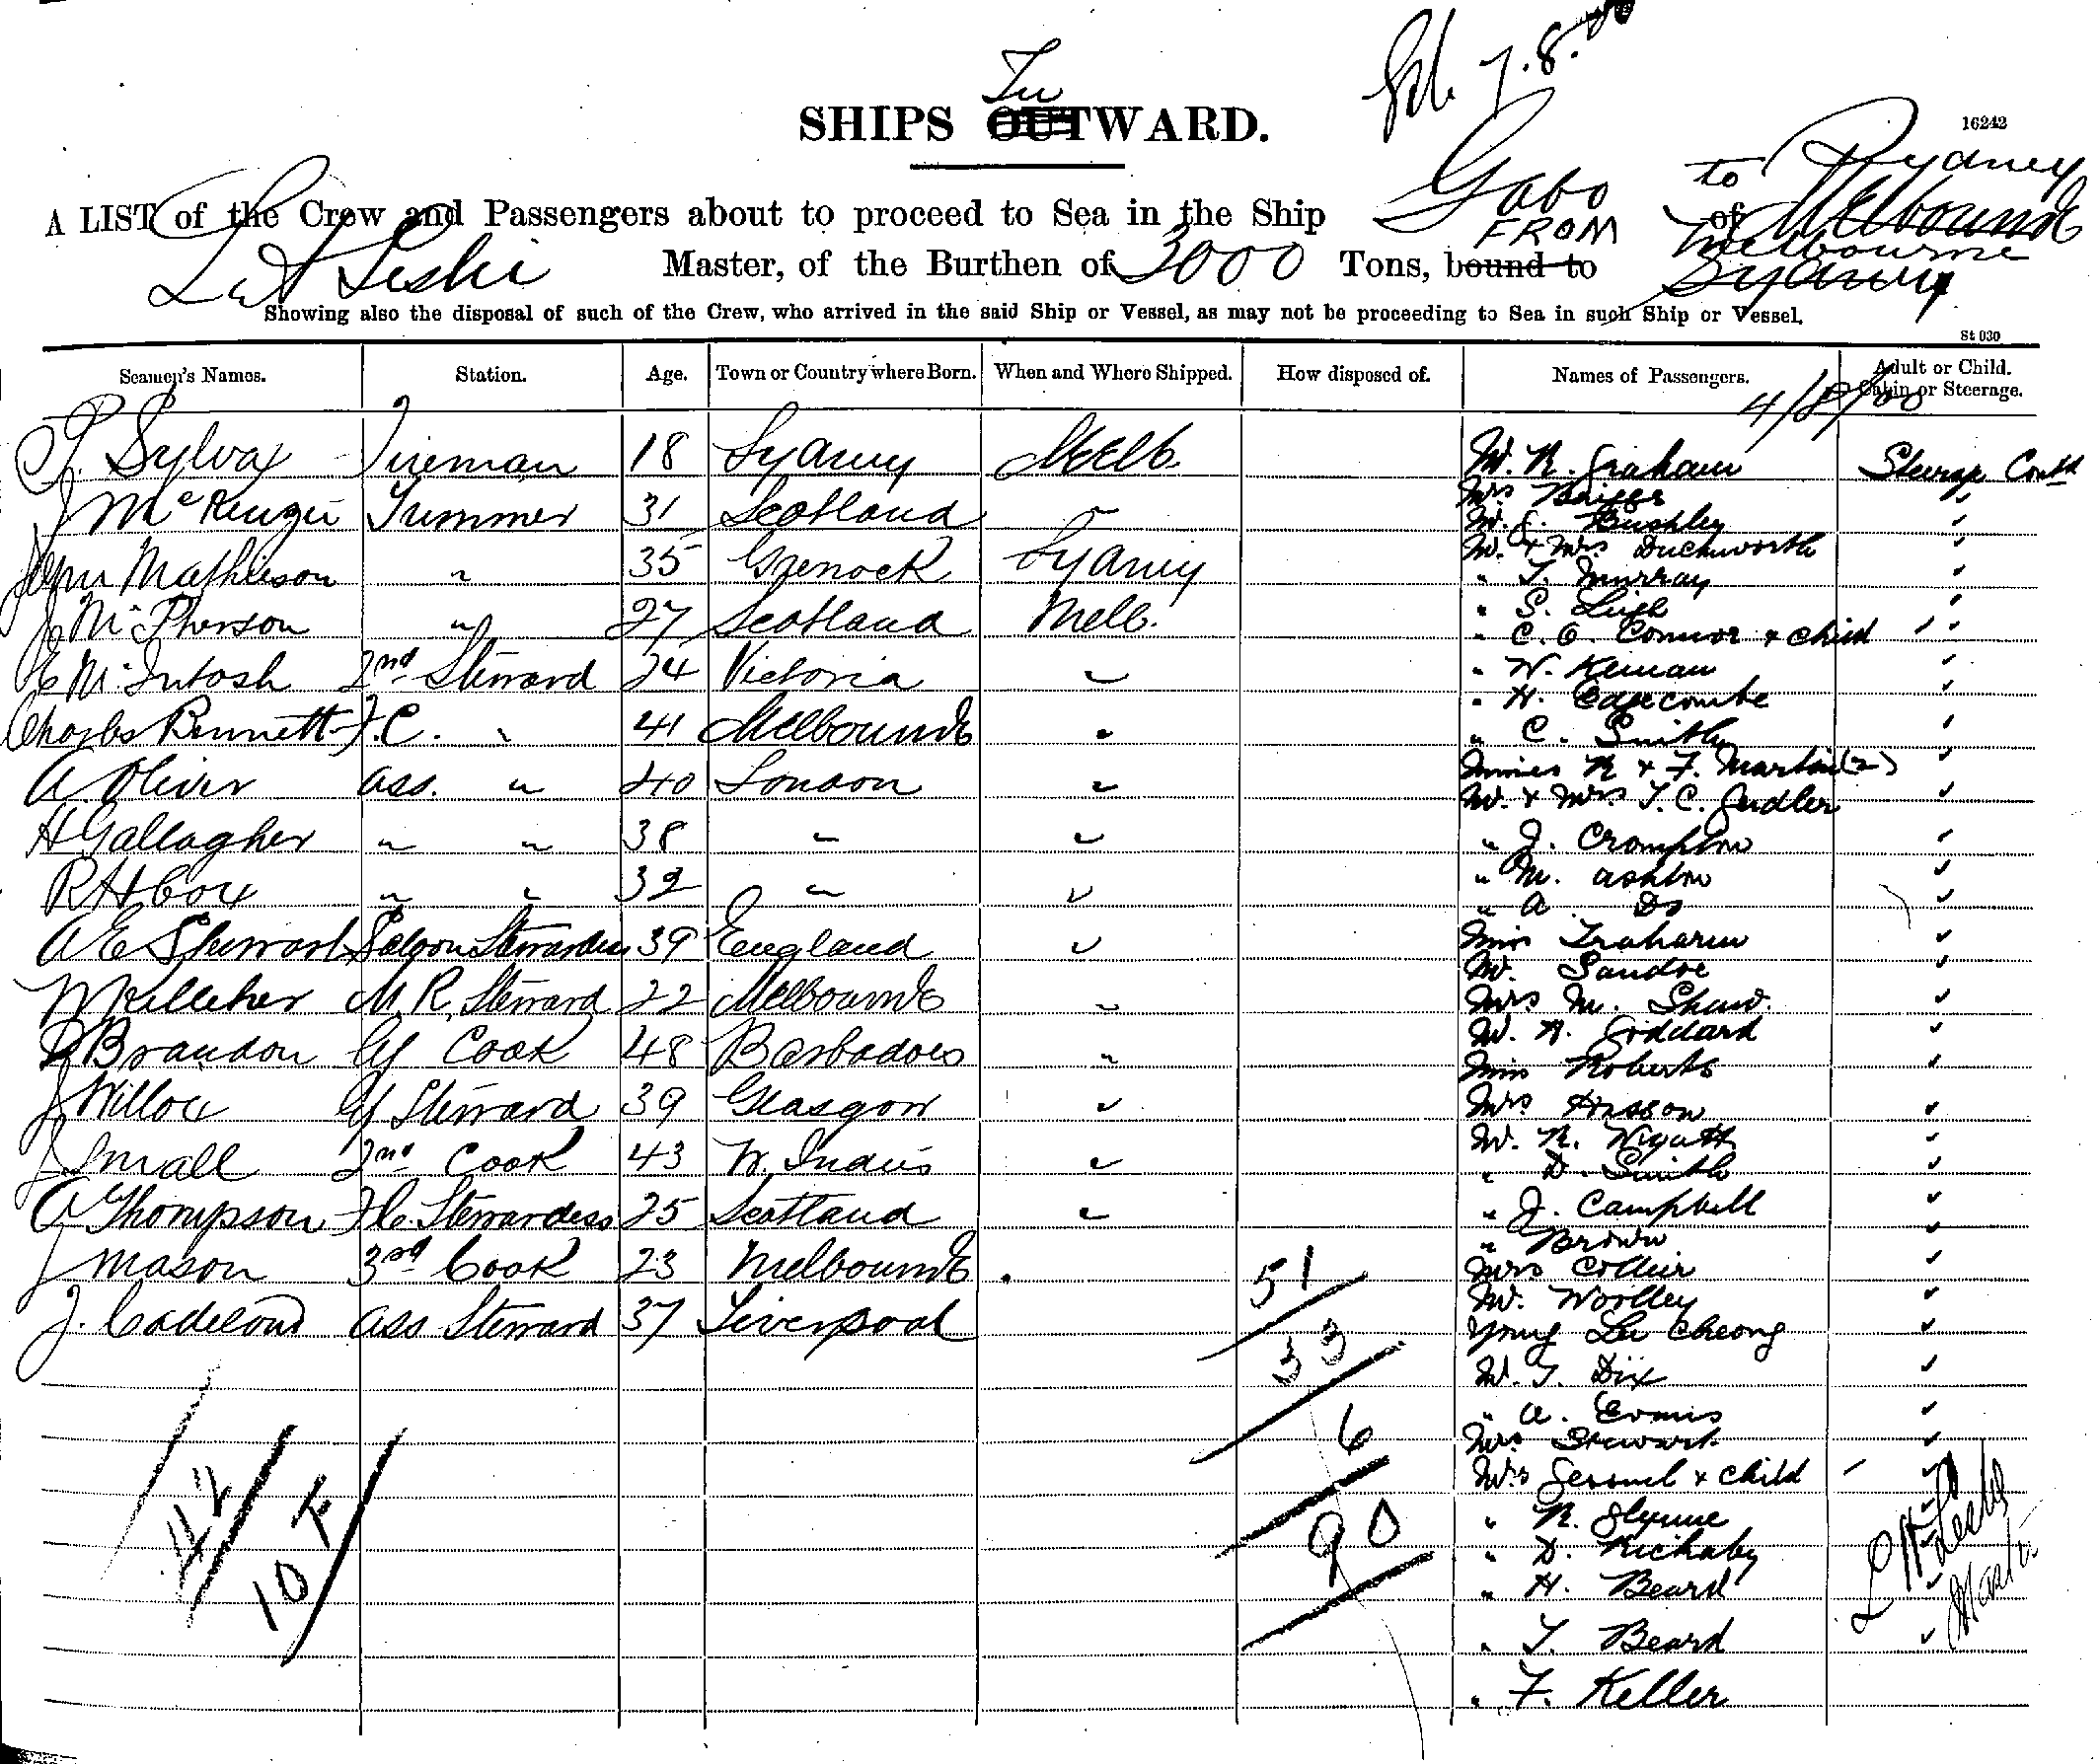 In
SHIPS OUTWARD.
7.8.00
16242
A LIST of the Crew and Passengers about to proceed to Sea in the Ship Gabo to Sydney of Melbourne
FROM Melbourne
Leslie Master, of the Burthen of 3000 Tons, bound to Sydney
Showing also the disposal of such of the Crew, who arrived in the said Ship or Vessel, as may not be proceeding to Sea in such Ship or Vessel.
St 030
Seamen's Names. Station. Age. Town or Country where Born. When and Where Shipped. How disposed of. Names of Passengers. Adult or Child. Cabin or Steerage.
4/8/00
J. Sylva Fireman 18 Sydney Melb. Mr. R. Graham Steerage Contd
Mrs Briggs "
J McKenzie Trimmer 31 Scotland " Mr. J. Bushley "
Mr. & Mrs Duckworth "
John Mathieson " 35 Greenock Sydney " T. Murray "
" S. Leigh "
J McPherson " 27 Scotland Melb. " C. O. Connor & child " "
E McIntosh 2nd Steward 24 Victoria " " W. Keinan "
" H. Edgecombe "
Charles Bennett F.C. " 41 Melbourne " " C. Smith "
Misses R & F. Martin (2) "
A Oliver Ass. " 40 London " Mr. & Mrs T. C. Sadler "
H Gallagher " " 38 " " " J. Crompton "
R H Cox " " 32 " " " M. Ashton "
" A. Do "
A E Stewart Saloon Stewardess 39 England " Miss Traharin "
Mr. Sandoe "
M Kelleher M. R. Steward 22 Melbourne " Mrs M. Shaw. "
Mr. H. Goddard "
D Brandon Cook 48 Barbadoes " Miss Roberts "
J Willox Steward 39 Glasgow " Mrs Hisson "
Mr. R. Wyatt "
J Small 2nd Cook 43 W. Indies " " D. Smith "
A Thompson F.C. Stewardess 25 Scotland " " J. Campbell "
" Brown "
J Mason 3rd Cook 23 Melbourne " Mrs Collier "
51 Mr. Worlley "
J. Ass Steward 37 Liverpool Young Lee Cheong "
33 Mr. T. Dix "
" A. Evans "
6 Mrs Stewart "
Mrs & child " "
42 " R. Glynne "
10 F 90 " D. Rickaby "
" H. Beard "
" T. Beard "
" F. Keller
Leslie
Master